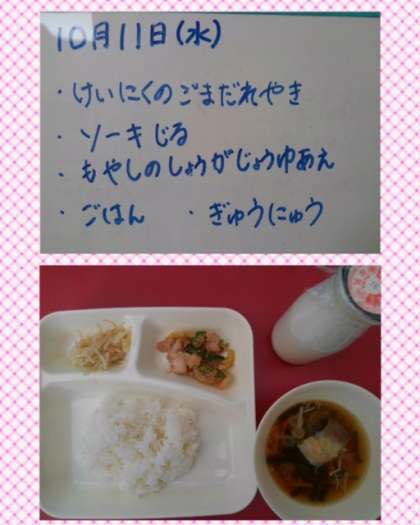 10月11日(水)
・けいにくのごまだれやき
・ソーキじる
・もやしのしょうがじょうゆあえ
・ごはん ・ぎゅうにゅう